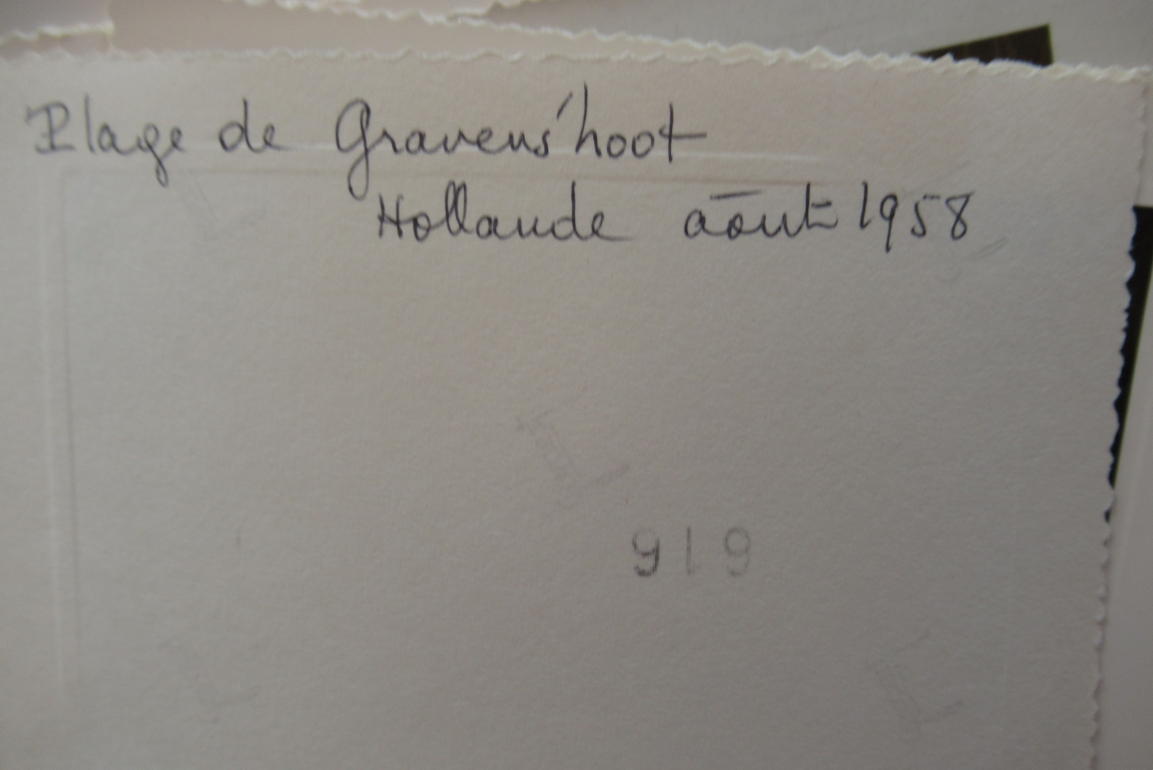 Plage de Gravens'hoot
Hollande aôut 1958
919